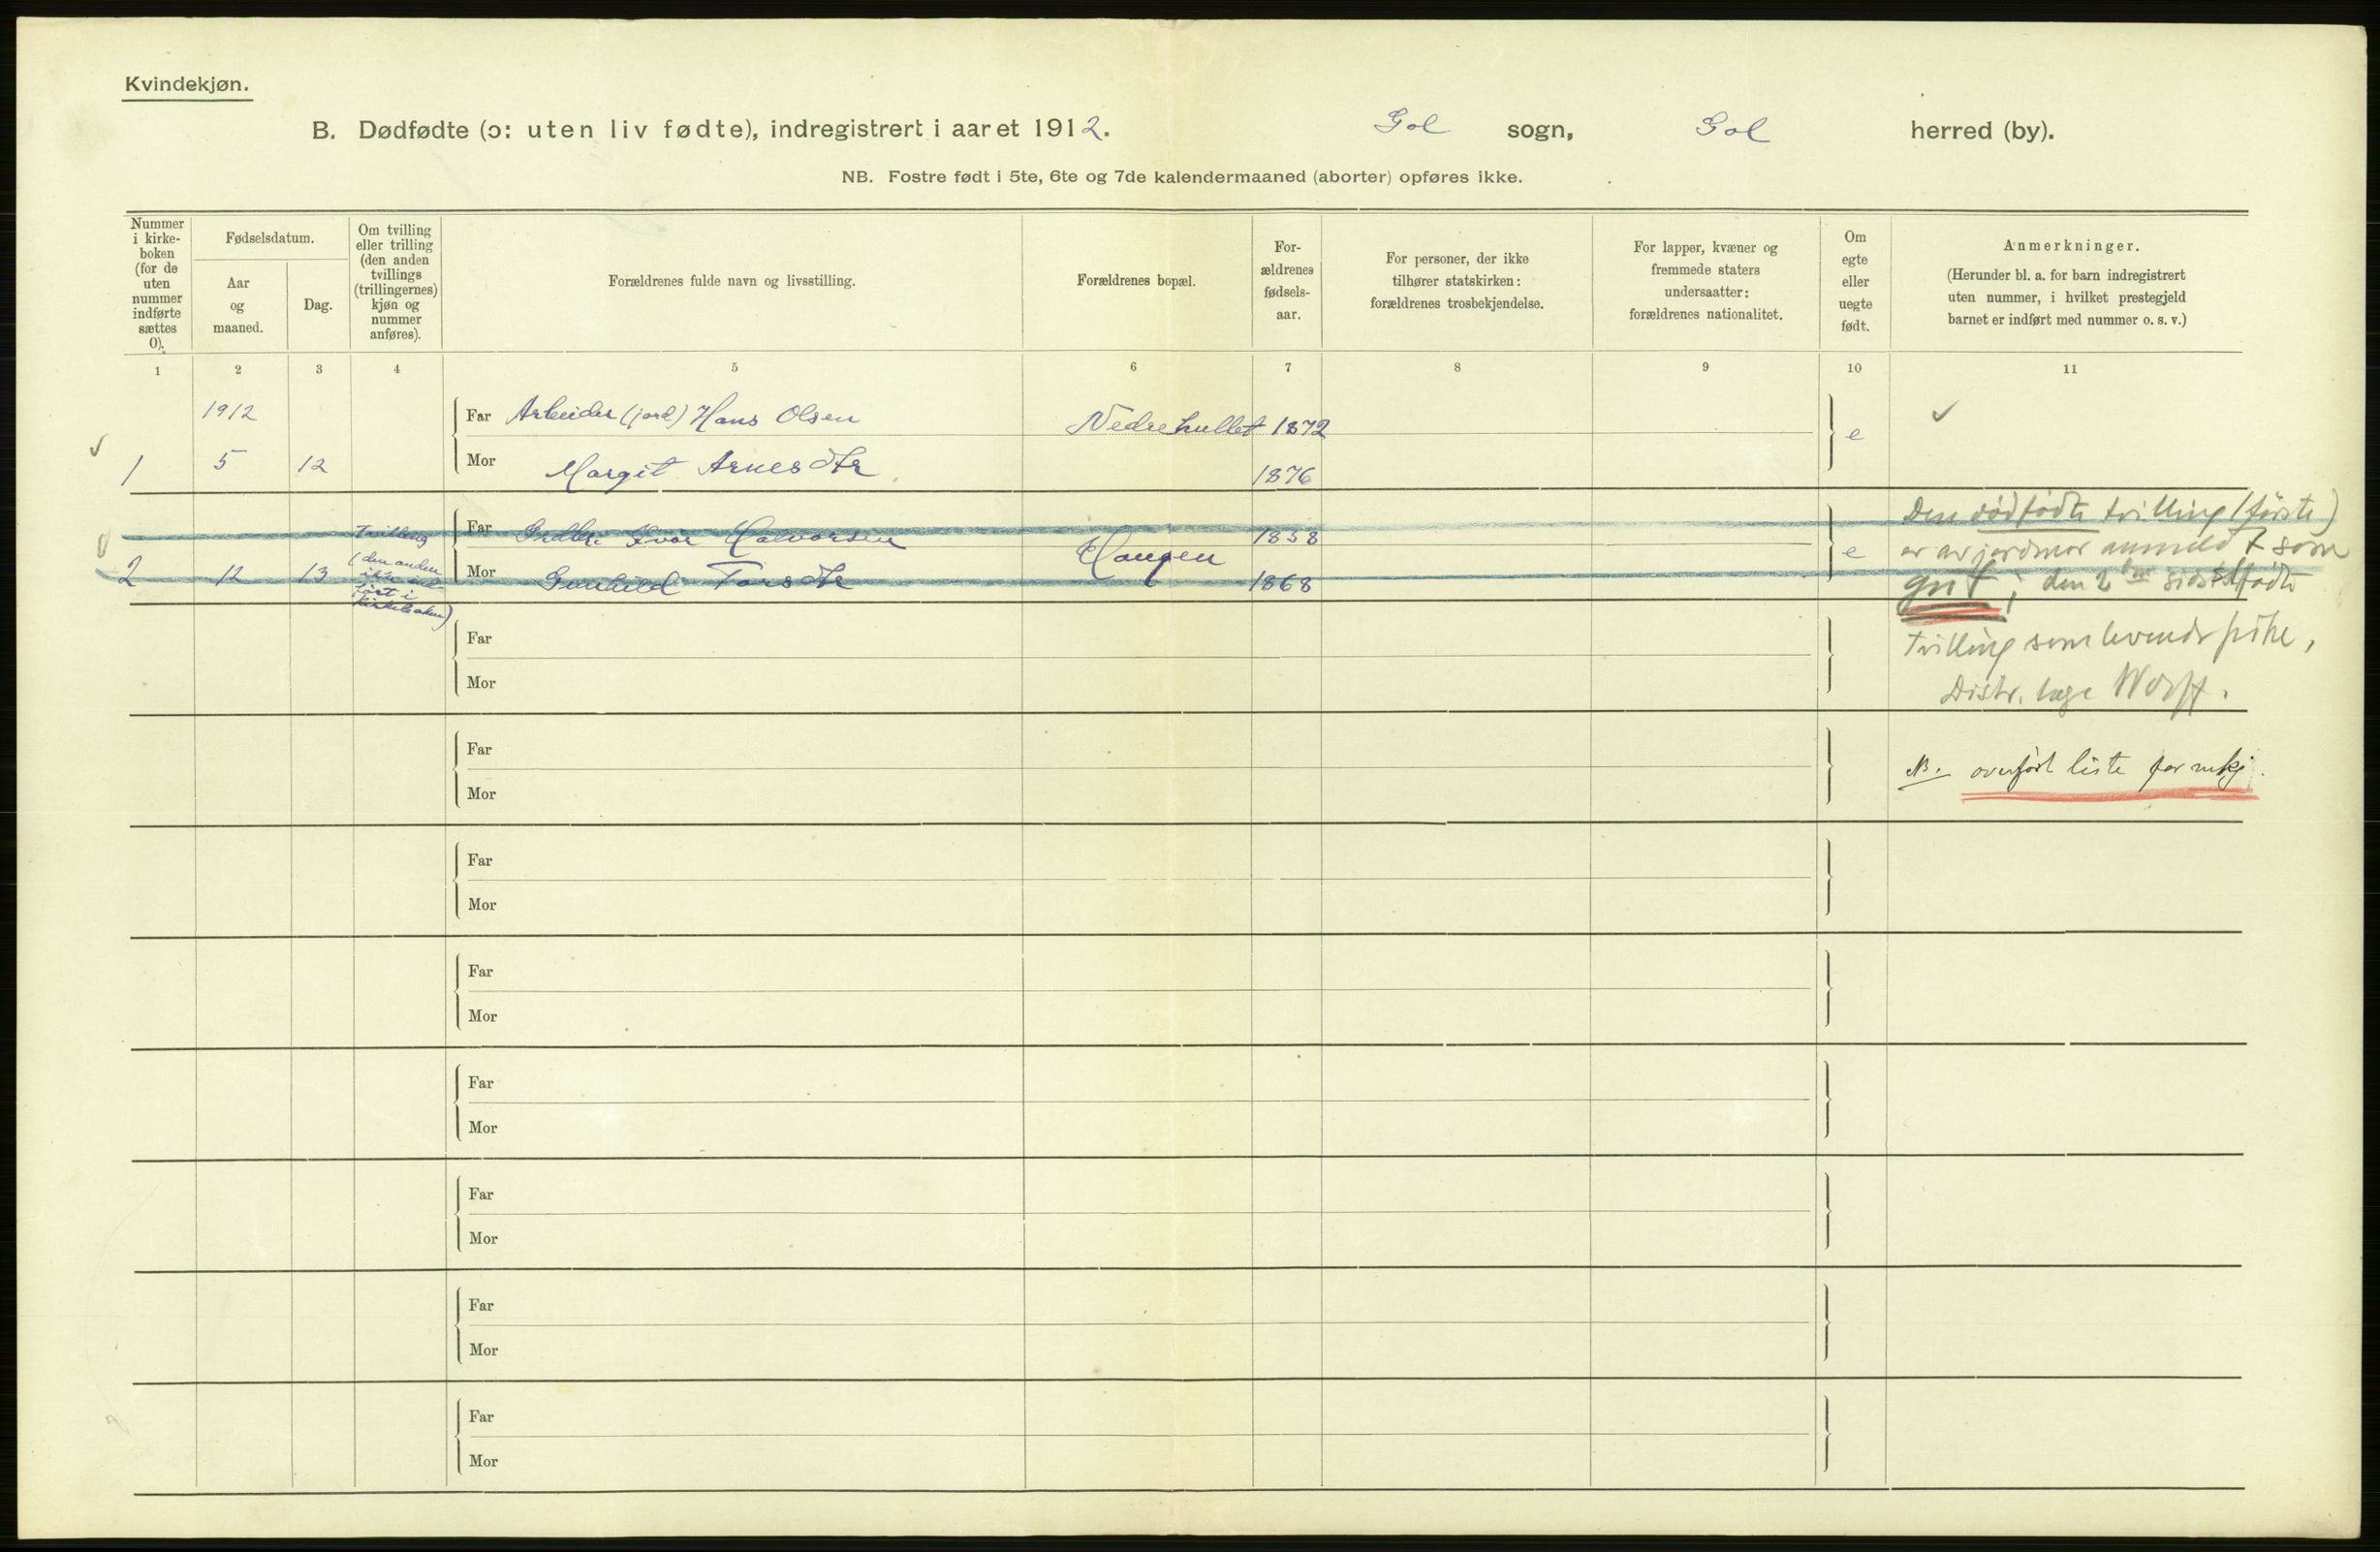 Kvindekjøn.
B. Dødfødte (ɔ: uten liv fødte), indregistrert i aaret 1912. Gol sogn, Gol herred (by).
NB. Fostre født i 5te, 6te og 7de kalendermaaned (aborter) opføres ikke.
Nummer
i kirke-
boken
(for de
uten
nummer
indførte
sættes
0).
Fødselsdatum.
Aar
og
maaned.
Dag.
Om tvilling
eller trilling
(den anden
tvillings
(trillingernes)
kjøn og
nummer
anføres).
Forældrenes fulde navn og livsstilling.
Forældrenes bopæl.
For-
ældrenes
fødsels-
aar.
For personer, der ikke
tilhører statskirken:
forældrenes trosbekjendelse.
For lapper, kvæner og
fremmede staters
undersaatter:
forældrenes nationalitet.
Om
egte
eller
uegte
født.
Anmerkninger.
(Herunder bl. a. for barn indregistrert
uten nummer, i hvilket prestegjeld
barnet er indført med nummer o. s. v.)
1 2 3 4 5 6 7 8 9 10 11
1912 Far Arbeider (jord) Hans Olsen Nedrehullet 1872 e ✓
✓ 1 5 12 Mor Margit Arnesdtr 1876
Tvilling
(den anden
ikke ind-
ført i
kirkeboken)
Far Ivar Halvorsen 1858
2 12 13 Mor Gunhild Torsdtr Haugen 1868 e
Den dødfødte tvilling (første)
er av jordmor anmeldt som
gut; den 2den sidstfødte
tvilling som levende pike,
Distr. læge
Far
Mor
NB. overført liste for mkj.
Far
Mor
Far
Mor
Far
Mor
Far
Mor
Far
Mor
Far
Mor
Far
Mor